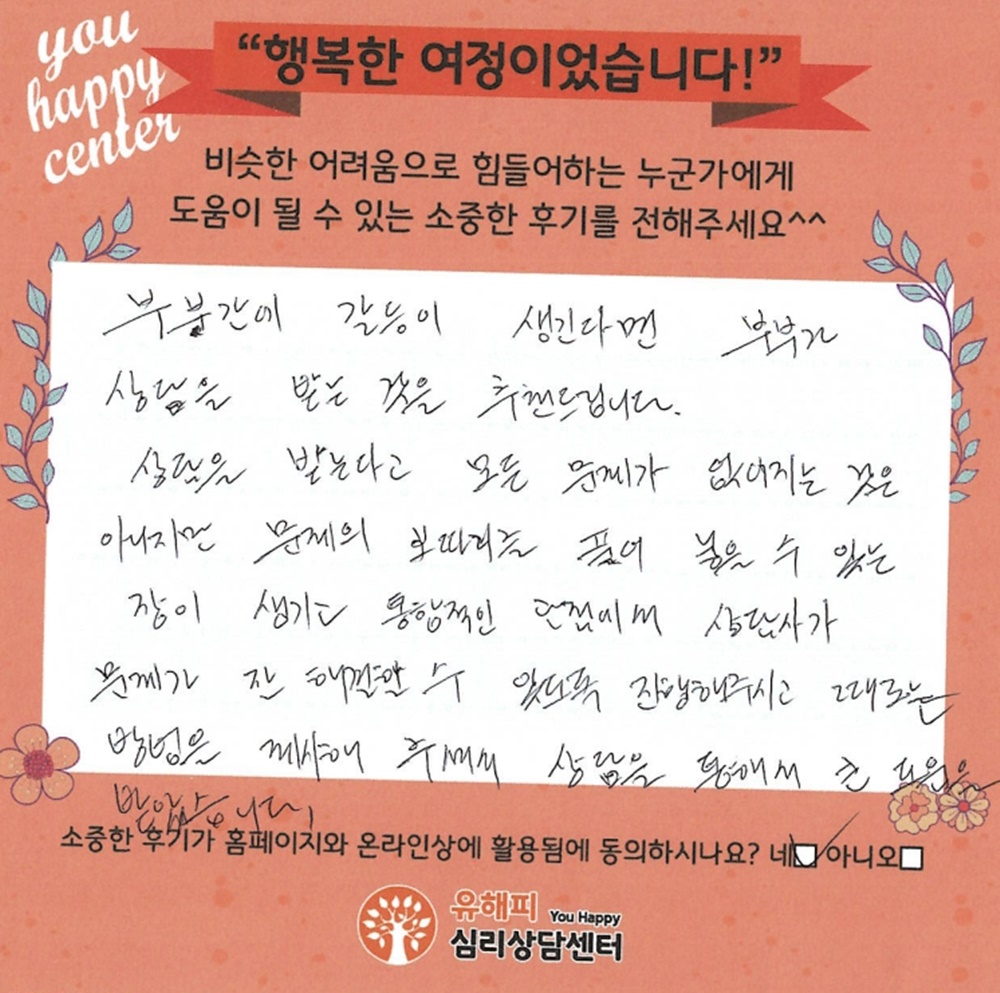 you
happy
center
“행복한 여정이었습니다!”
비슷한 어려움으로 힘들어하는 누군가에게
도움이 될 수 있는 소중한 후기를 전해주세요^^
부부간에 갈등이 생긴다면 부부가
상담을 받는 것을 추천드립니다.
상담을 받는다고 모든 문제가 없어지는 것은
아니지만 문제의 보따리를 풀어 놓을 수 있는
장이 생기고 통합적인 관점에서 상담사가
문제가 잘 해결할 수 있도록 진행해주시고 때로는
방법을 제시해 주셔서 상담을 통해서 큰 도움을
받았습니다.
소중한 후기가 홈페이지와 온라인상에 활용됨에 동의하시나요? 네 아니오
유해피 You Happy
심리상담센터